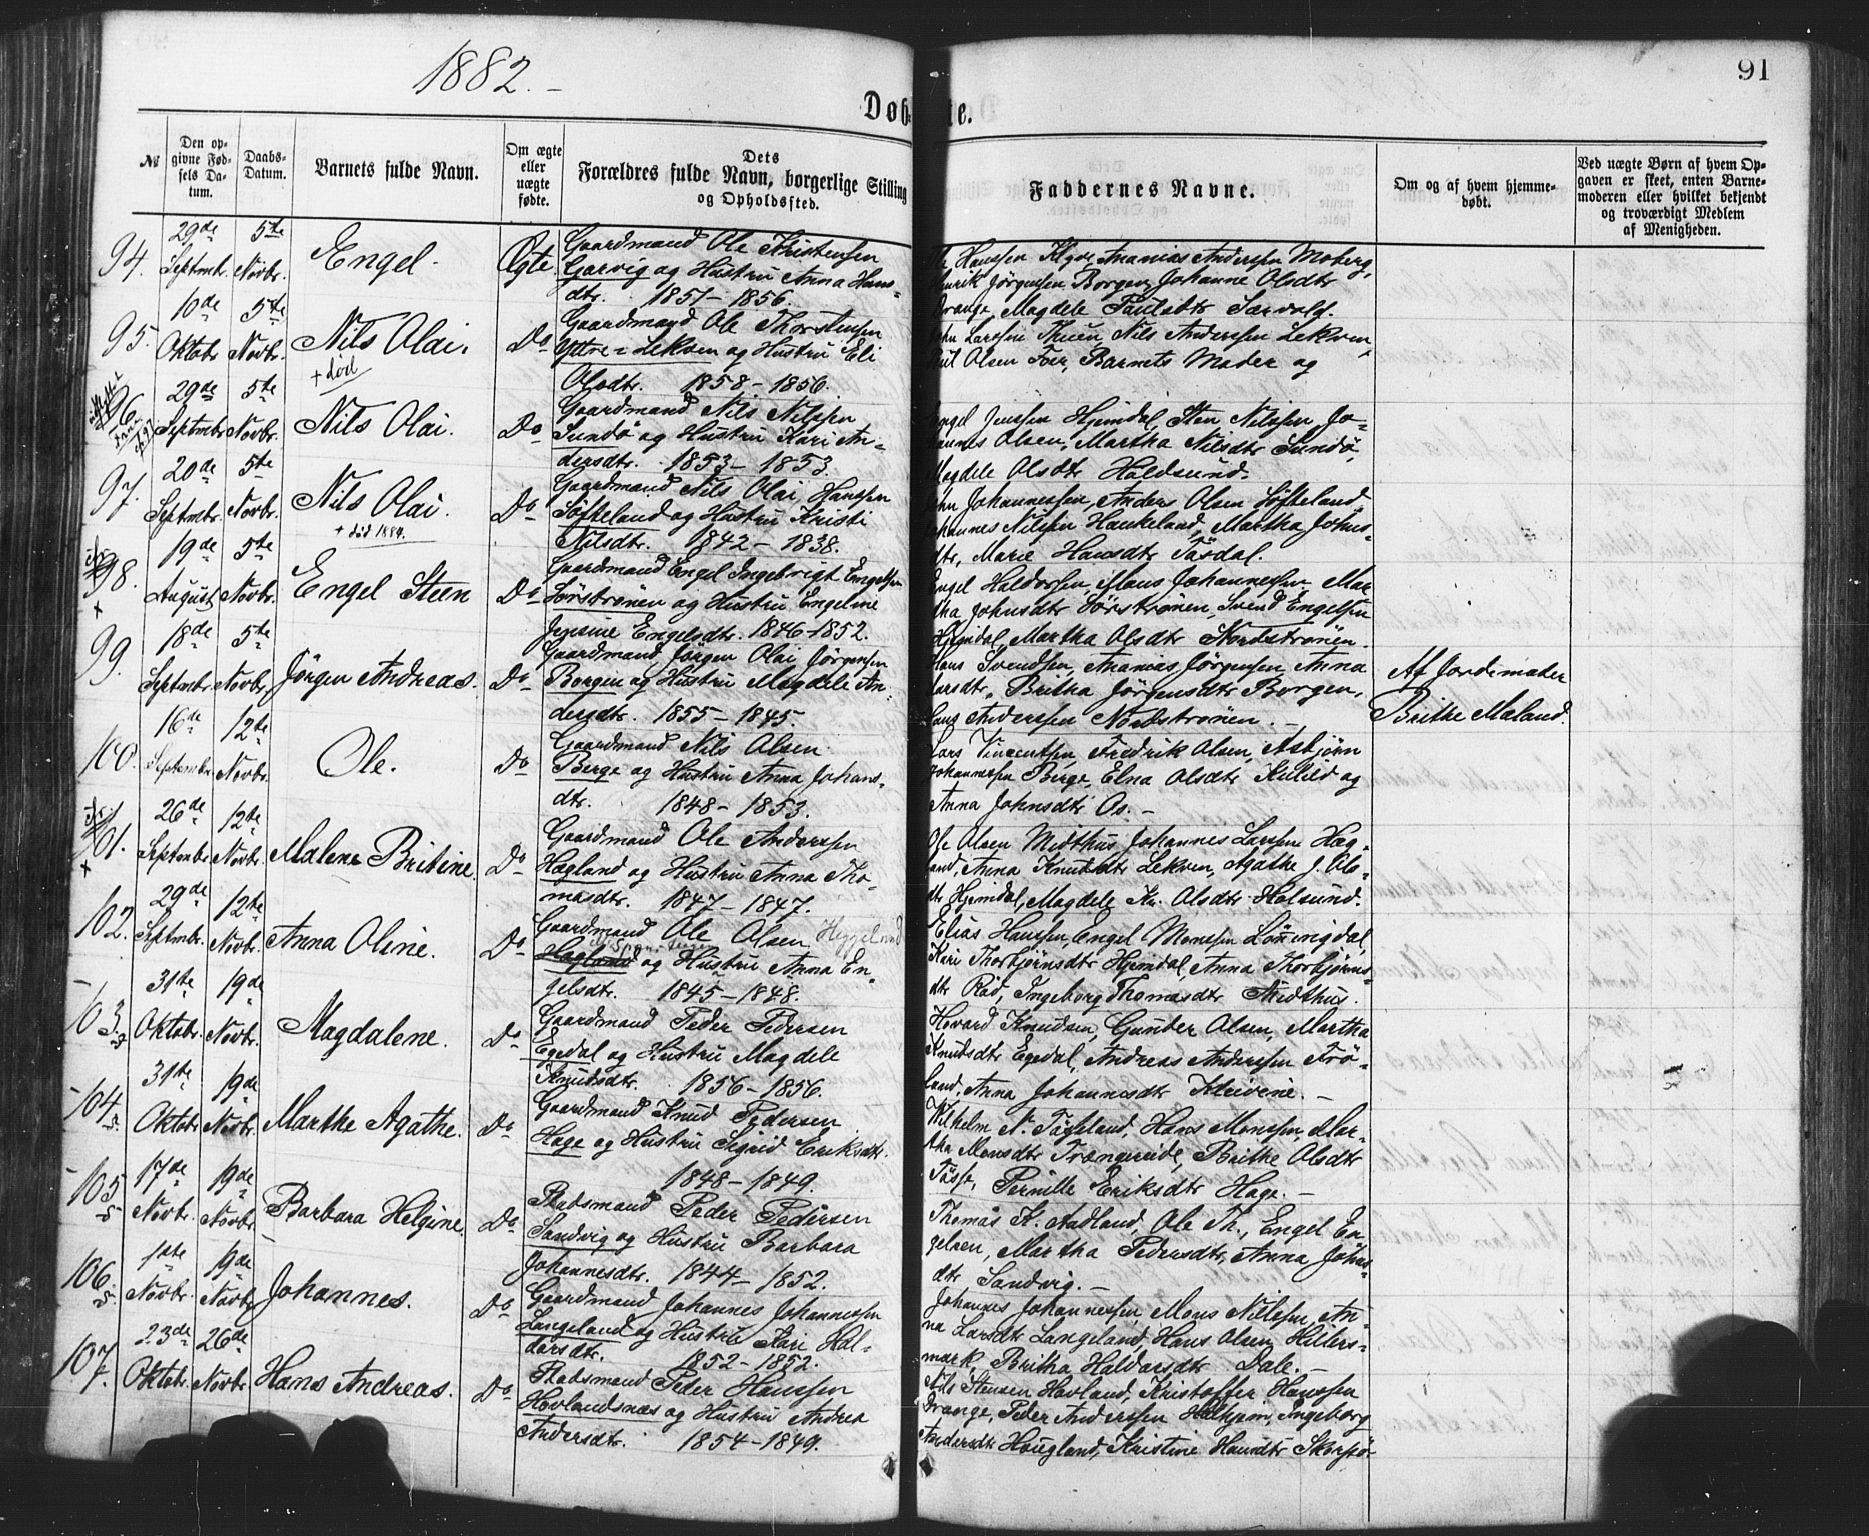 1882.
91
Døbte.
№
Den opgivne Fødsels Datum.
Daabs-Datum.
Barnets fulde Navn.
Om ægte eller uægte fødte.
Dets Forældres fulde Navn, borgerlige Stilling og Opholdssted.
Faddernes Navne.
Om og af hvem hjemmedøbt.
Ved uægte Børn af hvem Opgaven er skeet, enten Barnemoderen eller hvilket bekjendt og troværdigt Medlem af Menigheden.
94. 29de Septmbr. 5te Novbr. Engel. Ægte
Gaardmand Ole Kristensen
Gaasvig og Hustru Anna Hans-
dtr. 1851 - 1856.
Hanssen Klyve, Ananias Anderssen Moberg,
Henrik Jørgensen Borgen, Johanne Olsdtr
Drange, Magdele Paulsdtr Særvold.
95. 10de Oktobr 5te Novbr. Nils Olai. + død Do
Gaardmand Ole Thorstensen
Ytre-Lekven og Hustru Eli
Olsdtr. 1858 - 1856.
John Larssen Tuen, Nils Anderssen Lekven,
Olsen Foer, Barnets Moder og
96. 29de Septmbr 5te Novbr. Nils Olai. Do
Gaardmand Nils Nilssen
Sundø og Hustru Kari An-
dersdtr. 1853 - 1853.
Engel Jenssen Hjemdal, Sten Nilssen, Jo-
hannes Olsen, Martha Nilsdtr Sundø,
Magdele Olsdtr Holdsund.
97. 20de Septmbr. 5te Novbr. Nils Olai. + død 1884. Do
Gaardmand Nils Olai Hanssen
Søfteland og Hustru Kristi
Nilsdtr. 1842 - 1838.
John Johannessen, Anders Olsen Søfteland,
Johannes Nilssen Haukeland, Martha Johns-
dtr, Marie Hansdtr Tøsdal.
98. + 19de August 5te Novbr. Engel Steen Do
Gaardmand Engel Ingebrigt Engelsen
Sørstrønen og Hustru Engeline
Jensine Engelsdtr. 1846 - 1852.
Engel Haldorsen, Mons Johannessen, Mar-
tha Johnsdtr Sørstrønen, Svend Engelsen
Hjemdal, Martha Olsdtr Nordstrønen.
99. 18de Septmbr. 5te Novbr. Jørgen Andreas. Do
Gaardmand Jørgen Olai Jørgensen
Borgen og Hustru Magdele An-
dersdtr. 1855 - 1845.
Hans Svendsen, Ananias Jørgensen, Anna
Larsdtr, Britha Jørgensdtr Borgen,
Lars Anderssen Nordstrønen. -
Af Jordemoder
Brithe Maland.
100. 16de Septembr. 12te Novbr. Ole. Do
Gaardmand Nils Olsen
Berge og Hustru Anna Johans-
dtr. 1848 - 1853.
Lars Vincentsen, Fredrik Olsen, Asbjørn
Johannessen Berge, Elna Olsdtr Kulild og
Anna Johnsdtr Os. -
101. + 26de Septembr. 12te Novbr. Malene Britine. Do
Gaardmand Ole Anderssen
Hegland og Hustru Anna Tho-
masdtr. 1847 - 1847.
Ole Olsen Midthus, Johannes Larssen Heg-
land, Anna Knutsdtr Lekven, Agathe J. Ols-
dtr Hjemdal, Magdele Kn. Olsdtr Holsund.
102. 29de Septmbr. 12te Novbr. Anna Oline. Do
Gaardmand Ole Olsen
Hegland og Hustru Anna En-
gelsdtr. 1845 - 1848.
Elias Hanssen, Engel Monssen Lønningdal,
Kari Thorbjørnsdtr Hjemdal, Anna Thorbjørns-
dtr Rød, Ingeborg Thomasdtr Midthus.
103. 31te Oktobr. 19de Novbr. Magdalene. Do
Gaardmand Peder Pedersen
Egedal og Hustru Magdele
Knudsdtr. 1856 - 1856.
Hovard Knudsen, Gunder Olsen, Martha
Knudsdtr Egedal, Andreas Anderssen Frø-
land, Anna Johannesdtr Kleivene. -
104. 31te Oktobr. 19de Novbr. Marthe Agathe. Do
Gaardmand Knud Pedersen
Hage og Hustru Sigrid Eriksdtr.
1848 - 1849.
Wilhelm N. Tøsseland, Hans Monssen, Mar-
tha Monsdtr Trængereide, Brithe Olsdtr
Tøsse, Pernille Eriksdtr Hage. -
105. 17de Novbr. 19de Novbr. Barbara Helgine. Do
Pladsmand Peder Pedersen
Sandvig og Hustru Barbara
Johannesdtr. 1844 - 1852.
Thomas K. Aadland, Ole Th., Engel En-
gelsen, Martha Pedersdtr, Anna Johns-
dtr Sandvig. -
106. 1ste Novbr. 19de Novbr. Johannes. Do
Gaardmand Johannes Johannessen
Langeland og Hustru Kari Hal-
dorsdtr. 1852 - 1852.
Johannes Johannessen, Mons Nilssen, An-
na Larsdtr Langeland, Hans Olsen Hillers-
mark, Britha Haldorsdtr Dale. -
107. 23de Oktobr. 26de Novbr. Hans Andreas. Do
Pladsmand Peder Hanssen
Hovlandsnæs og Hustru Andrea
Andersdtr. 1854 - 1849.
Nils Stensen Hovland, Kristoffer Hanssen
Drange, Peder Anderssen Halhjem, Ingeborg
Andersdtr Hougland, Kristine Hansdtr Skorpø.